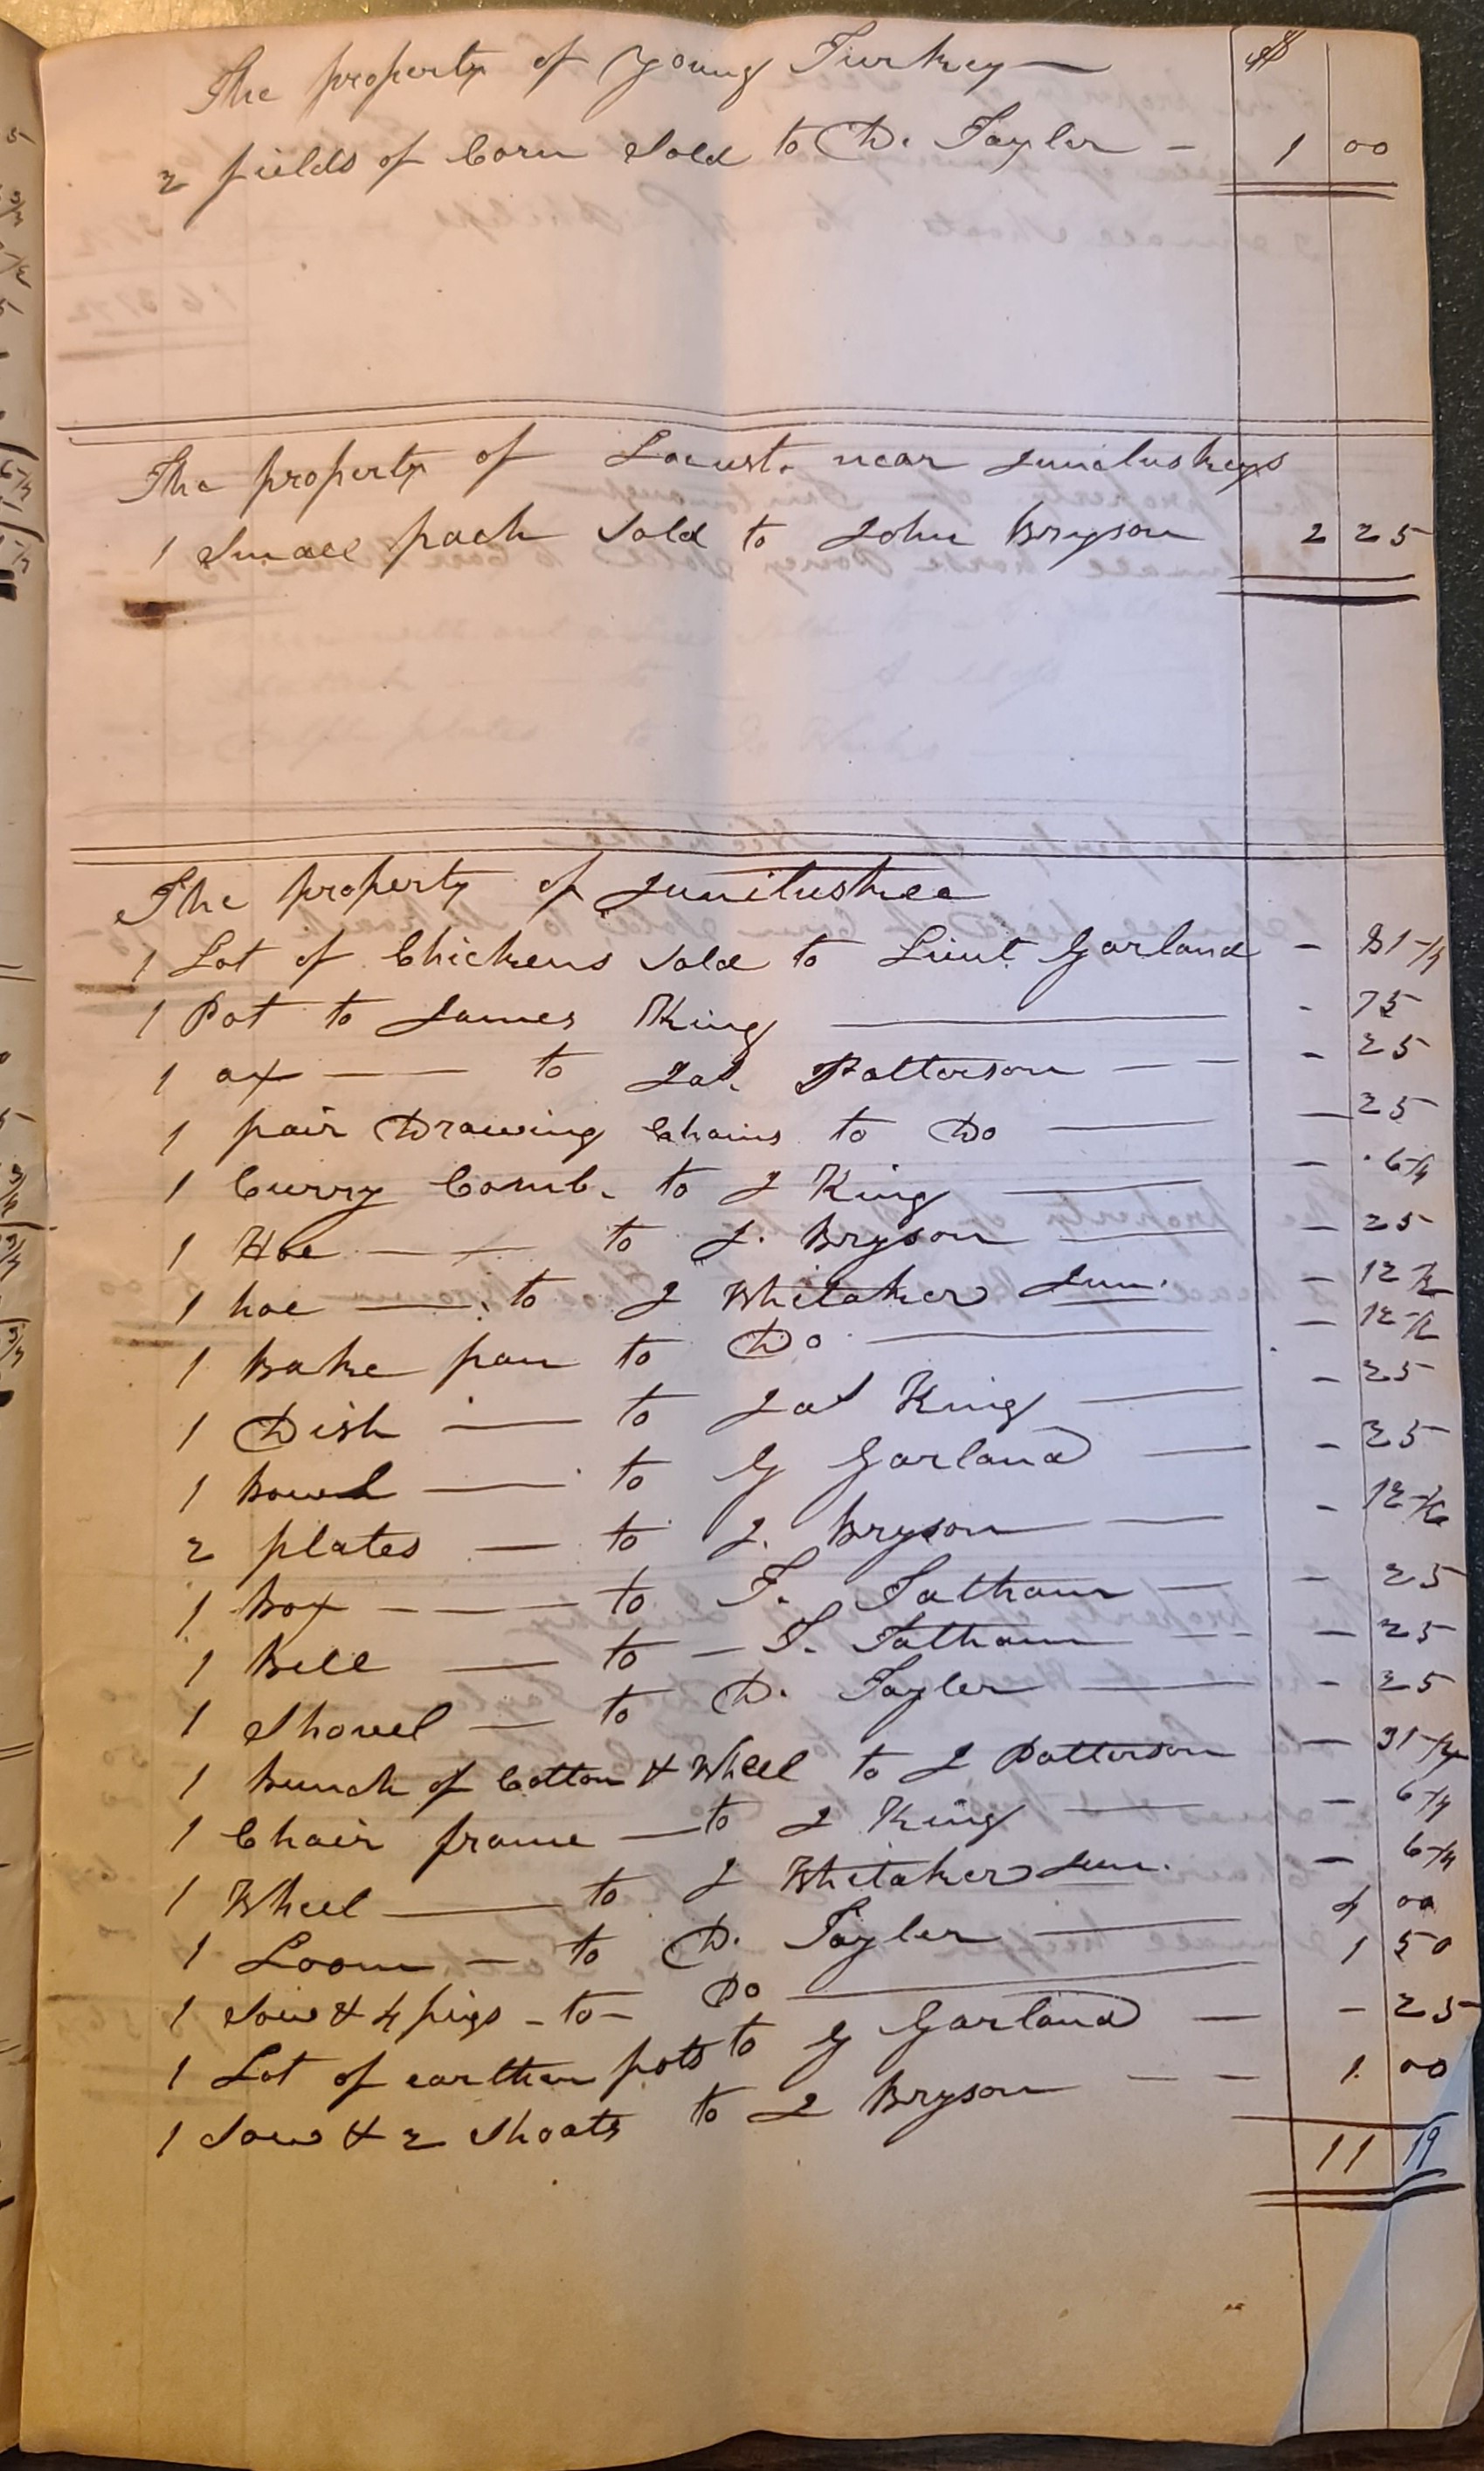 The property of Young Turkey — $
2 fields of Corn Sold to D. Tayler - 1 00
The property of Locust. near Junaluskeys
1 Small pach Sold to John Bryson 2 25
The property of Juniluskee
1 Lot of Chickens Sold to Lieut Garland - 31-1/4
1 Pot to James King — - 75
1 ax — — to Jas. Patterson — — - 25
1 pair Drawing Chains to Do — — 25
1 Curry Comb. to J King — - 6 1/4
1 Hoe — — to J. Bryson — - 25
1 hoe — to J Whitaker Jun. - 12 1/2
1 Bake pan to Do — - 12 1/2
1 Dish — to Jas King — - 25
1 Bowl — to G Garland — - 25
2 plates — to J. Bryson — - 12 1/2
1 Box - — to T. Tatham — - 25
1 Bell — to - T. Tatham — - 25
1 Shovel — to D. Tayler — - 25
1 Bunch of Cotton & Wheel to J Patterson — 31-1/4
1 Chair frame — to J King — - 6 1/4
1 Wheel — to J Whitaker Jun. - 6 1/4
1 Loom - to D. Tayler — 4 00
1 Sow & 4 pigs - to - Do — 1 50
1 Lot of earthen pots to G Garland — - 25
1 Sow & 2 Shoats to J Bryson — — 1. 00
11 19